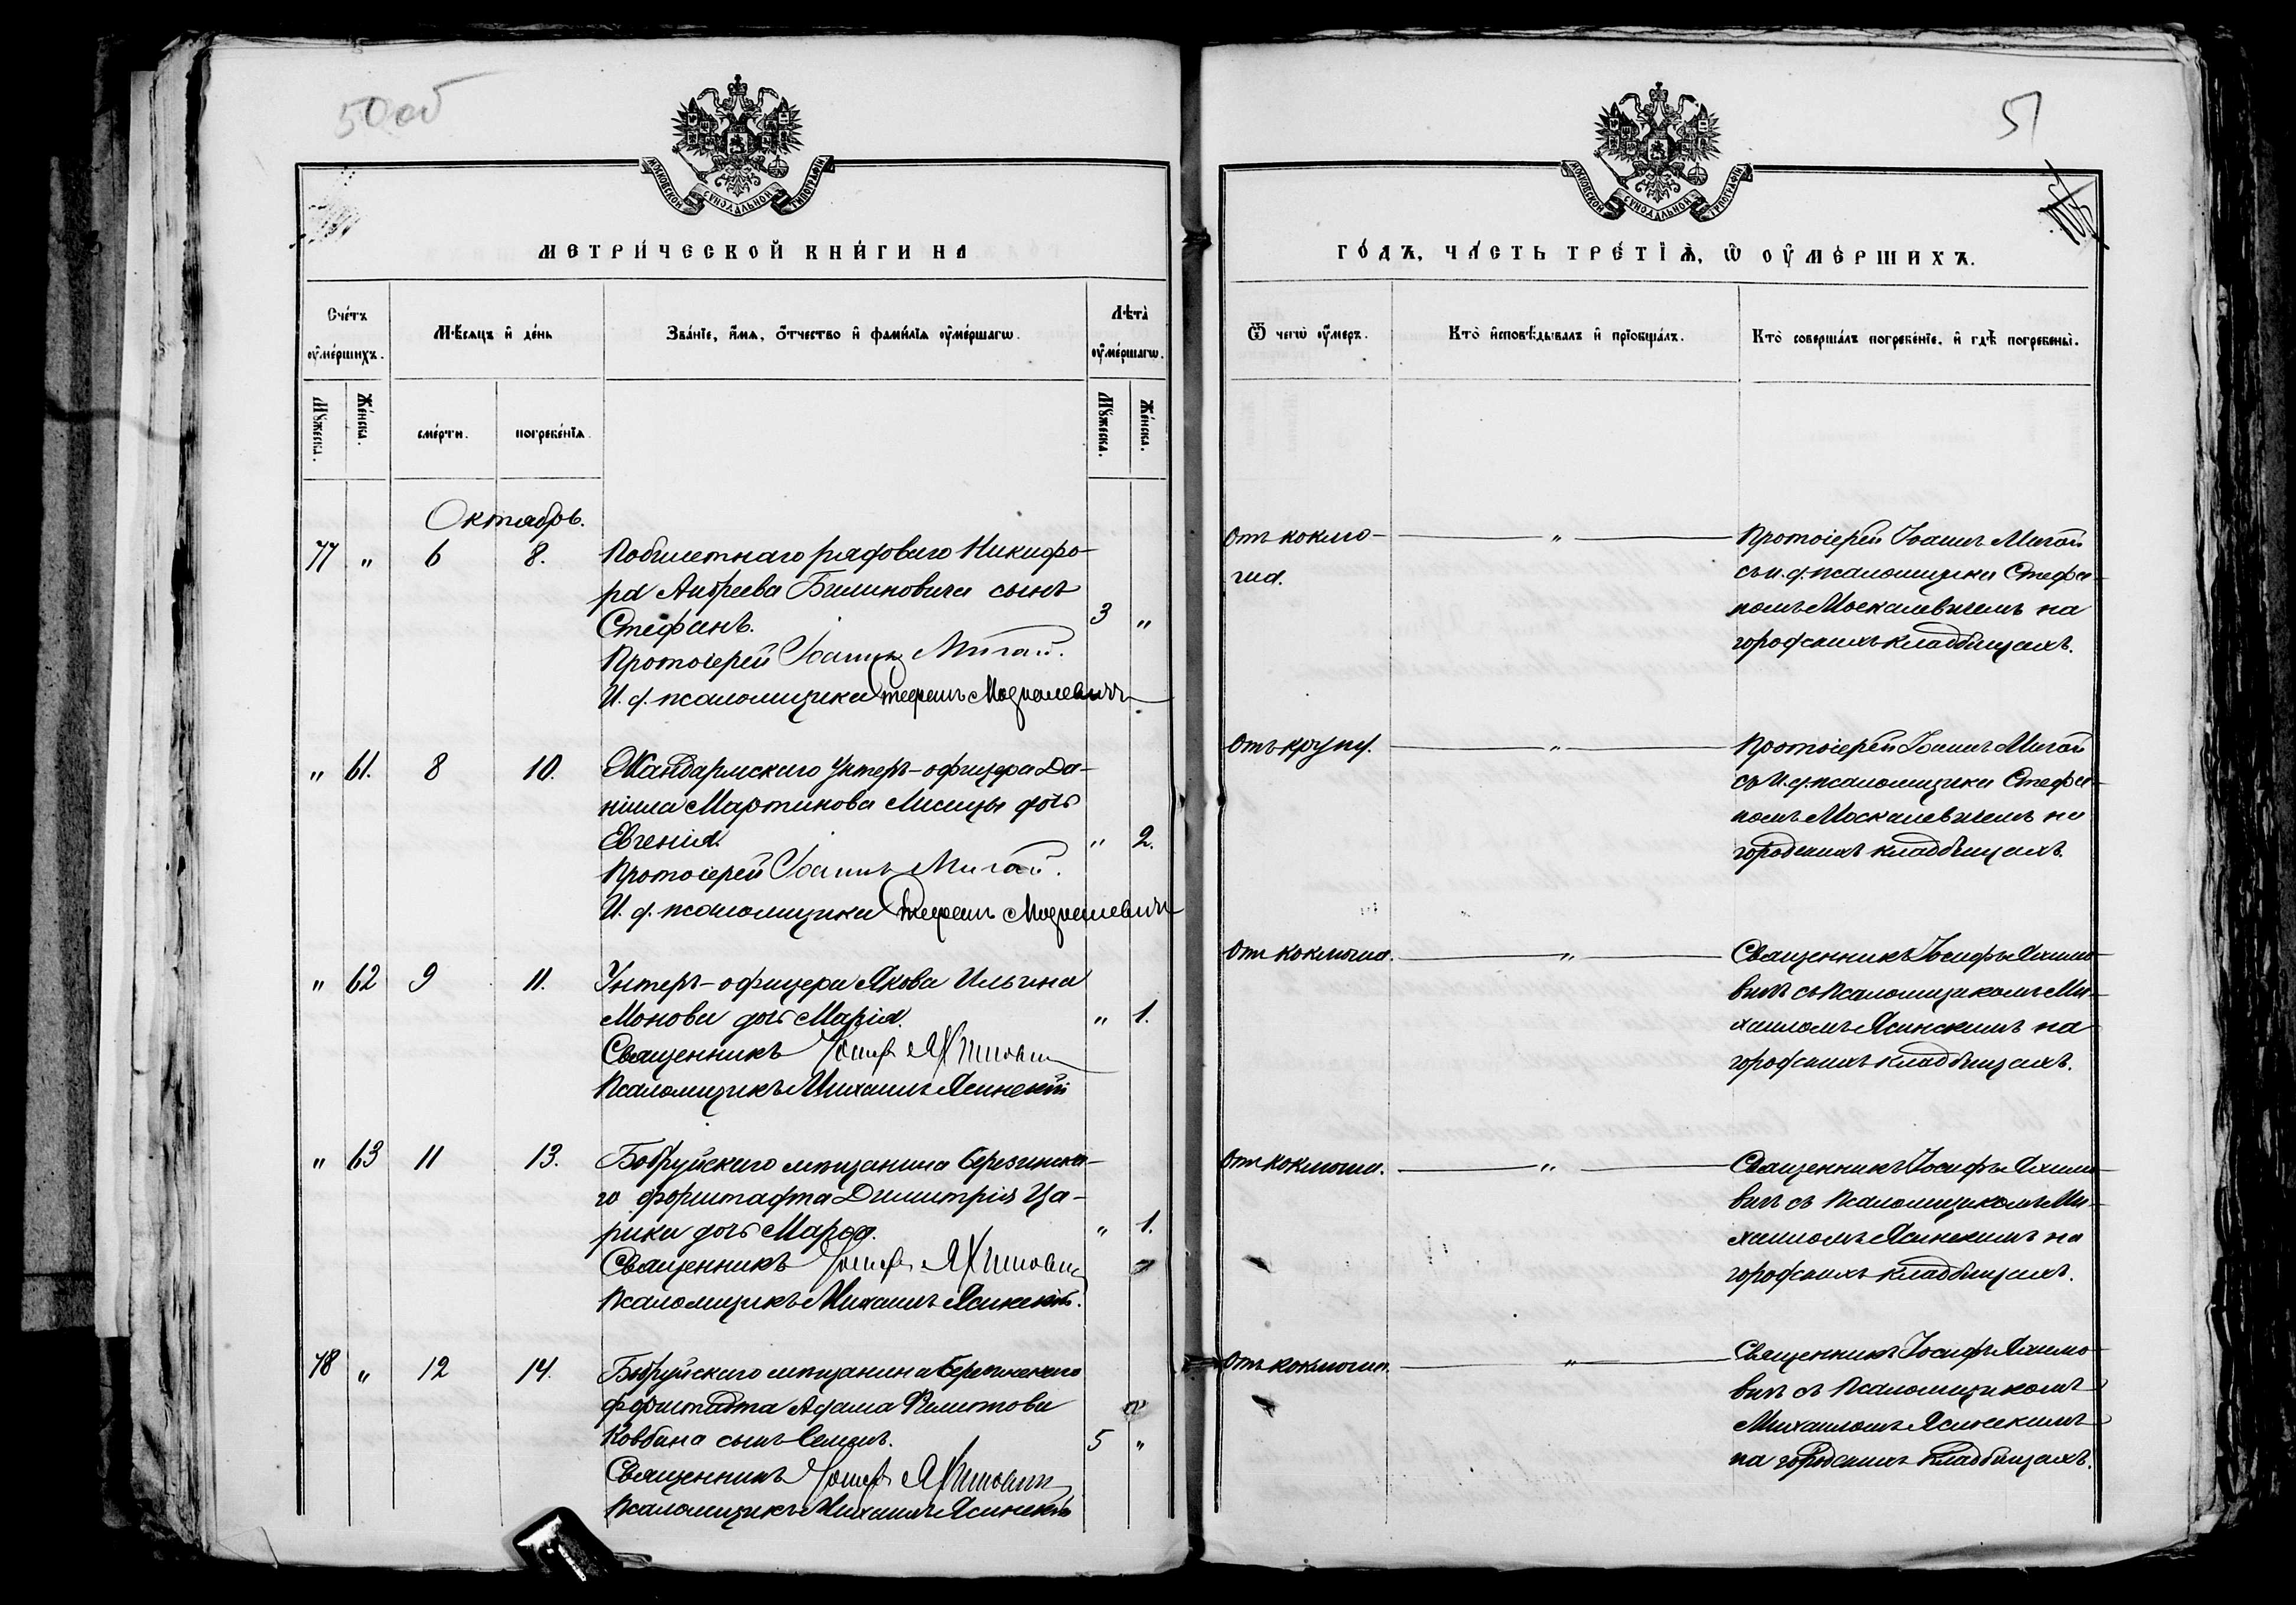 50 об
МОСКОВСКОЙ СѴНОДАЛЬНОЙ ТИПОГРАФІИ
МЕТРИ́ЧЕСКОЙ КНИ́ГИ НА
Сче́тъ ᲂу҆ме́ршихъ.
Мѣ́сяцъ и҆ де́нь
Зва́нїе, и҆́мѧ, ѻ҆́тчество и҆ фами́лїѧ ᲂу҆ме́ршагѡ.
Лѣта̀ ᲂу҆ме́ршагѡ.
Мꙋ́жеска.
Же́нска.
сме́рти.
погребе́нїѧ.
Мꙋ́жеска.
Же́нска.
Октябрь.
77 „ 6 8. Побилетнаго рядоваго Никифо-
ра Андреева Билиновича сынъ
Стефанъ. 3 „
Протоіерей Іоаннъ Мигай.
И. д. псаломщика Стефанъ Москалевичъ
„ 61. 8 10. Жандармскаго Унтеръ-офицера Да-
ніила Мартинова Лисицы дочь
Евгенія. „ 2.
Протоіерей Іоаннъ Мигай.
И. д. псаломщика Стефанъ Москалевичъ
„ 62 9 11. Унтеръ-офицера Якова Ильина
Монова дочь Марія. „ 1.
Священникъ Іосифъ Яхимовичъ
Псаломщикъ Михаилъ Ясинскій
„ 63 11 13. Бобруйскаго мѣщанина Березинска-
го форштадта Димитрія Ца-
рика дочь Марѳа. „ 1.
Священникъ Іосифъ Яхимовичъ
Псаломщикъ Михаилъ Ясинскій.
78 „ 12 14. Бобруйскаго мѣщанина Березинскаго
форштадта Адама Филитова
Ковбана сынъ Семенъ. 5 „
Священникъ Іосифъ Яхимовичъ
Псаломщикъ Михаилъ Ясинскій
51
МОСКОВСКОЙ СѴНОДАЛЬНОЙ ТИПОГРАФІИ
ГО́ДЪ, ЧА́СТЬ ТРЕ́ТЇѦ, Ѡ҆ ОУ҆МЕ́РШИХЪ.
Ѿ чегѡ̀ ᲂу҆́меръ.
Кто̀ и҆сповѣ́дывалъ и҆ прїѻбща́лъ.
Кто̀ соверша́лъ погребе́нїе, и҆ гдѣ̀ погребены̀.
Отъ коклю- „ Протоіерей Іоаннъ Мигай
ша. съ и. д. псаломщика Стефа-
номъ Москалевичемъ на
городскихъ кладбищахъ.
Отъ крупа. „ Протоіерей Іоаннъ Мигай
съ и. д. псаломщика Стефа-
номъ Москалевичемъ на
городскихъ кладбищахъ.
Отъ коклюша. „ Священникъ Іосифъ Яхимо-
вичъ съ Псаломщикомъ Ми-
хаиломъ Ясинскимъ на
городскихъ кладбищахъ.
Отъ коклюша. „ Священникъ Іосифъ Яхимо-
вичъ съ Псаломщикомъ Ми-
хаиломъ Ясинскимъ на
городскихъ кладбищахъ.
Отъ коклюша. „ Священникъ Іосифъ Яхимо-
вичъ съ Псаломщикомъ
Михаиломъ Ясинскимъ
на городскихъ кладбищахъ.